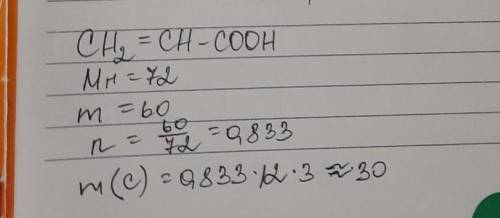 CH₂ = CH - COOH
Mн = 72
m = 60
n = 60/72 = 0,833
m(C) = 0,833·12·3 ≈ 30